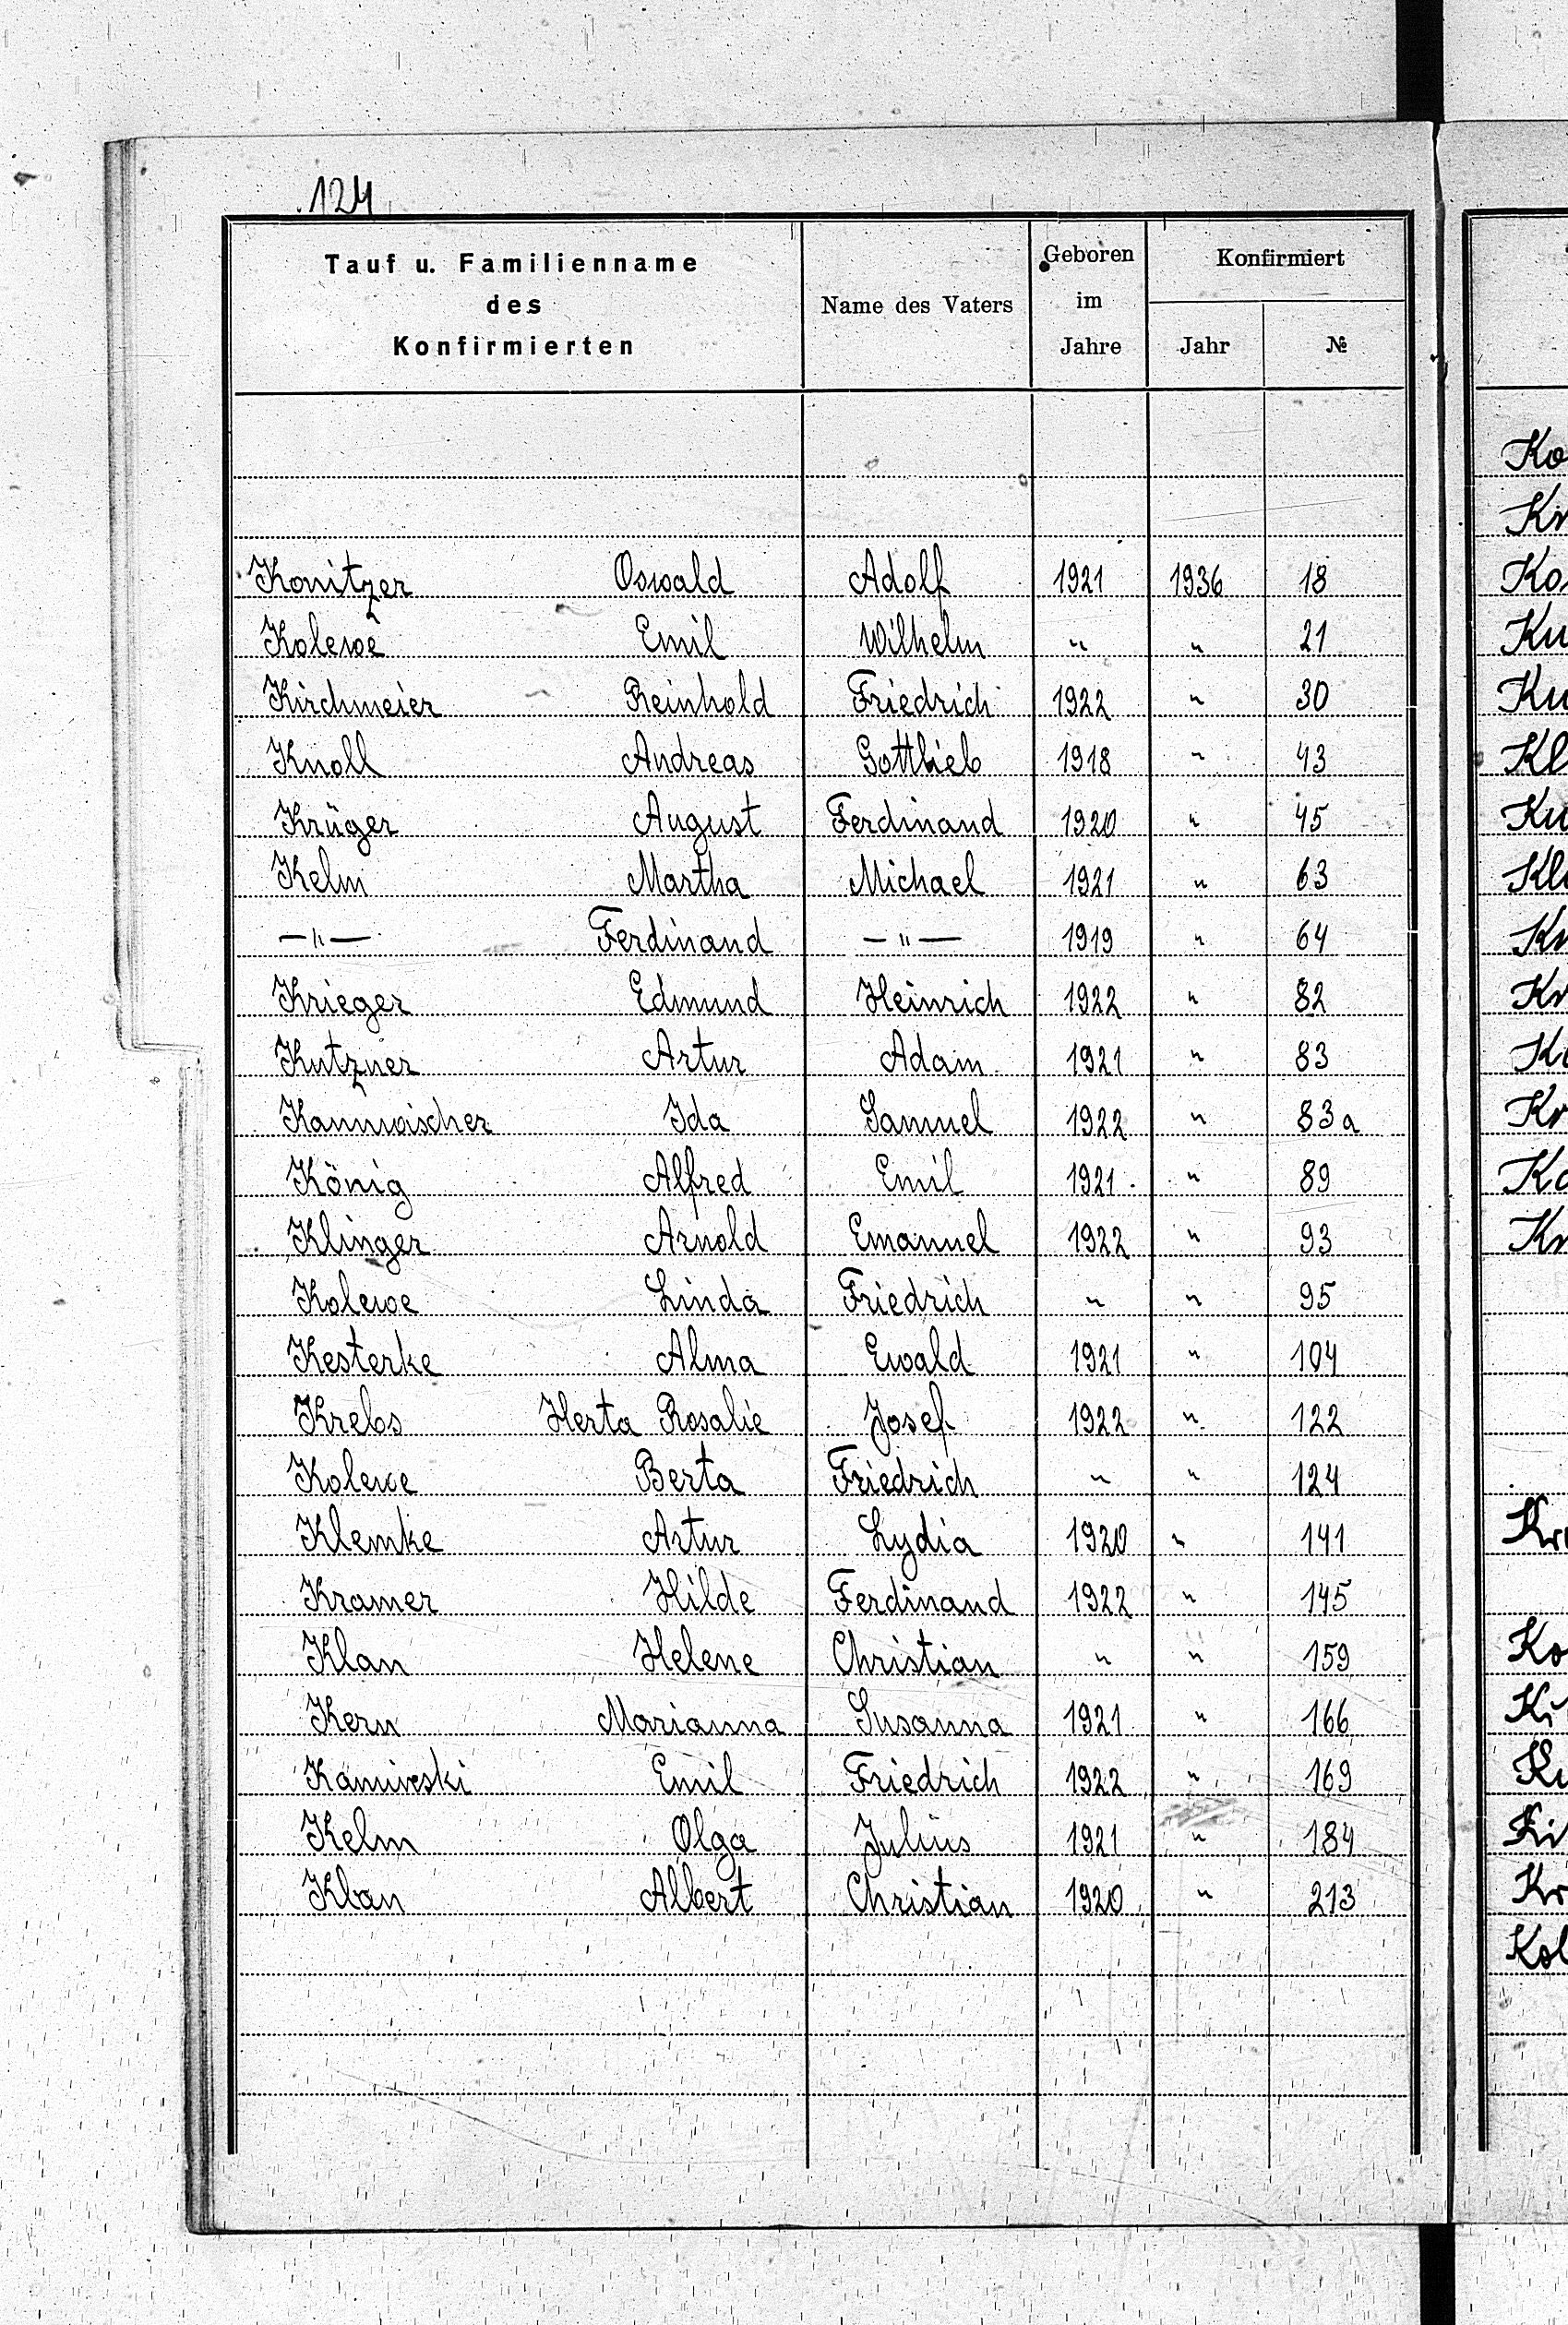 124
Tauf u. Familienname des Konfirmierten | Name des Vaters | Geboren im Jahre | Konfirmiert Jahr | №
Konitzer Oswald Adolf 1921 1936 18
Kolewe Emil Wilhelm " " 21
Kirchmeier Reinhold Friedrich 1922 " 30
Knoll Andreas Gottlieb 1918 " 43
Krüger August Ferdinand 1920 " 45
Kelm Martha Michael 1921 " 63
—"— Ferdinand —"— 1919 " 64
Krieger Edmund Heinrich 1922 " 82
Kutzner Artur Adam 1921 " 83
Kannwischer Ida Samuel 1922 " 83a
König Alfred Emil 1921 " 89
Klinger Arnold Emanuel 1922 " 93
Kolewe Linda Friedrich " " 95
Kesterke Alma Ewald 1921 " 104
Krebs Herta Rosalie Josef 1922 " 122
Kolewe Berta Friedrich " " 124
Klemke Artur Lydia 1920 " 141
Kramer Hilde Ferdinand 1922 " 145
Klan Helene Christian " " 159
Kern Marianna Susanna 1921 " 166
Kaminski Emil Friedrich 1922 " 169
Kelm Olga Julius 1921 " 184
Klan Albert Christian 1920 " 213